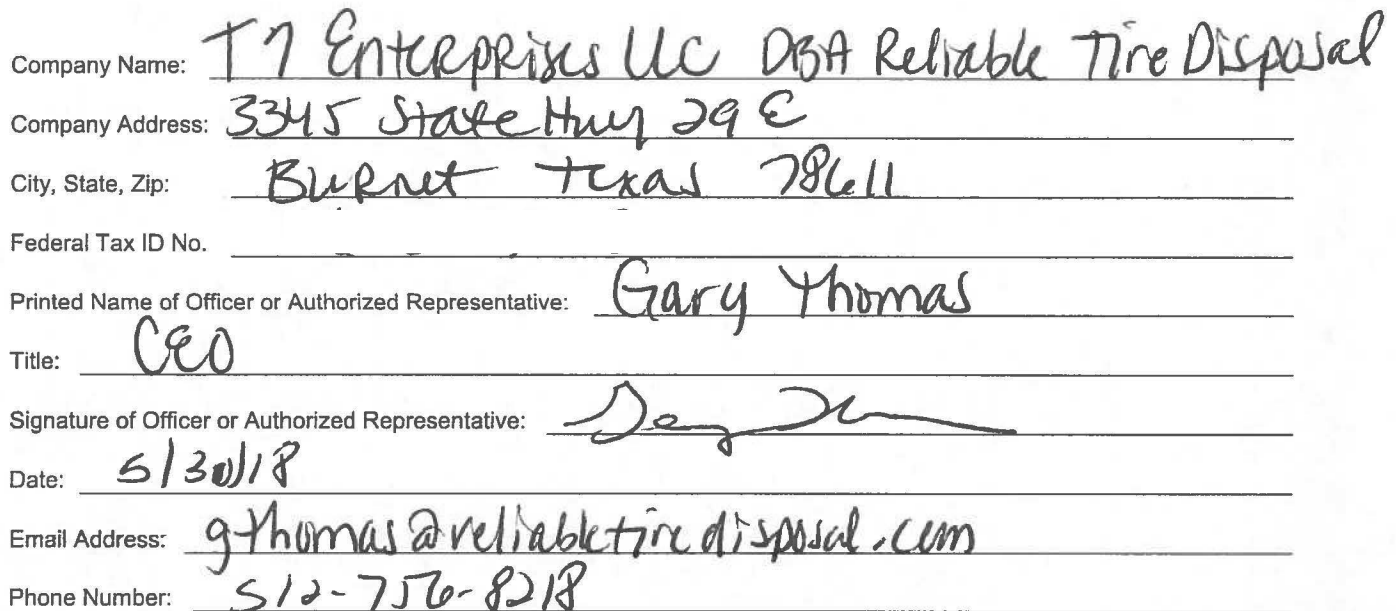 Company Name: T7 Enterprises LLC DBA Reliable Tire Disposal
Company Address: 3345 State Hwy 29 E
City, State, Zip: Burnet Texas 78611
Federal Tax ID No.
Printed Name of Officer or Authorized Representative: Gary Thomas
Title: CEO
Signature of Officer or Authorized Representative:
Date: 5/30/18
Email Address: gthomas@reliabletiredisposal.com
Phone Number: 512-756-8218